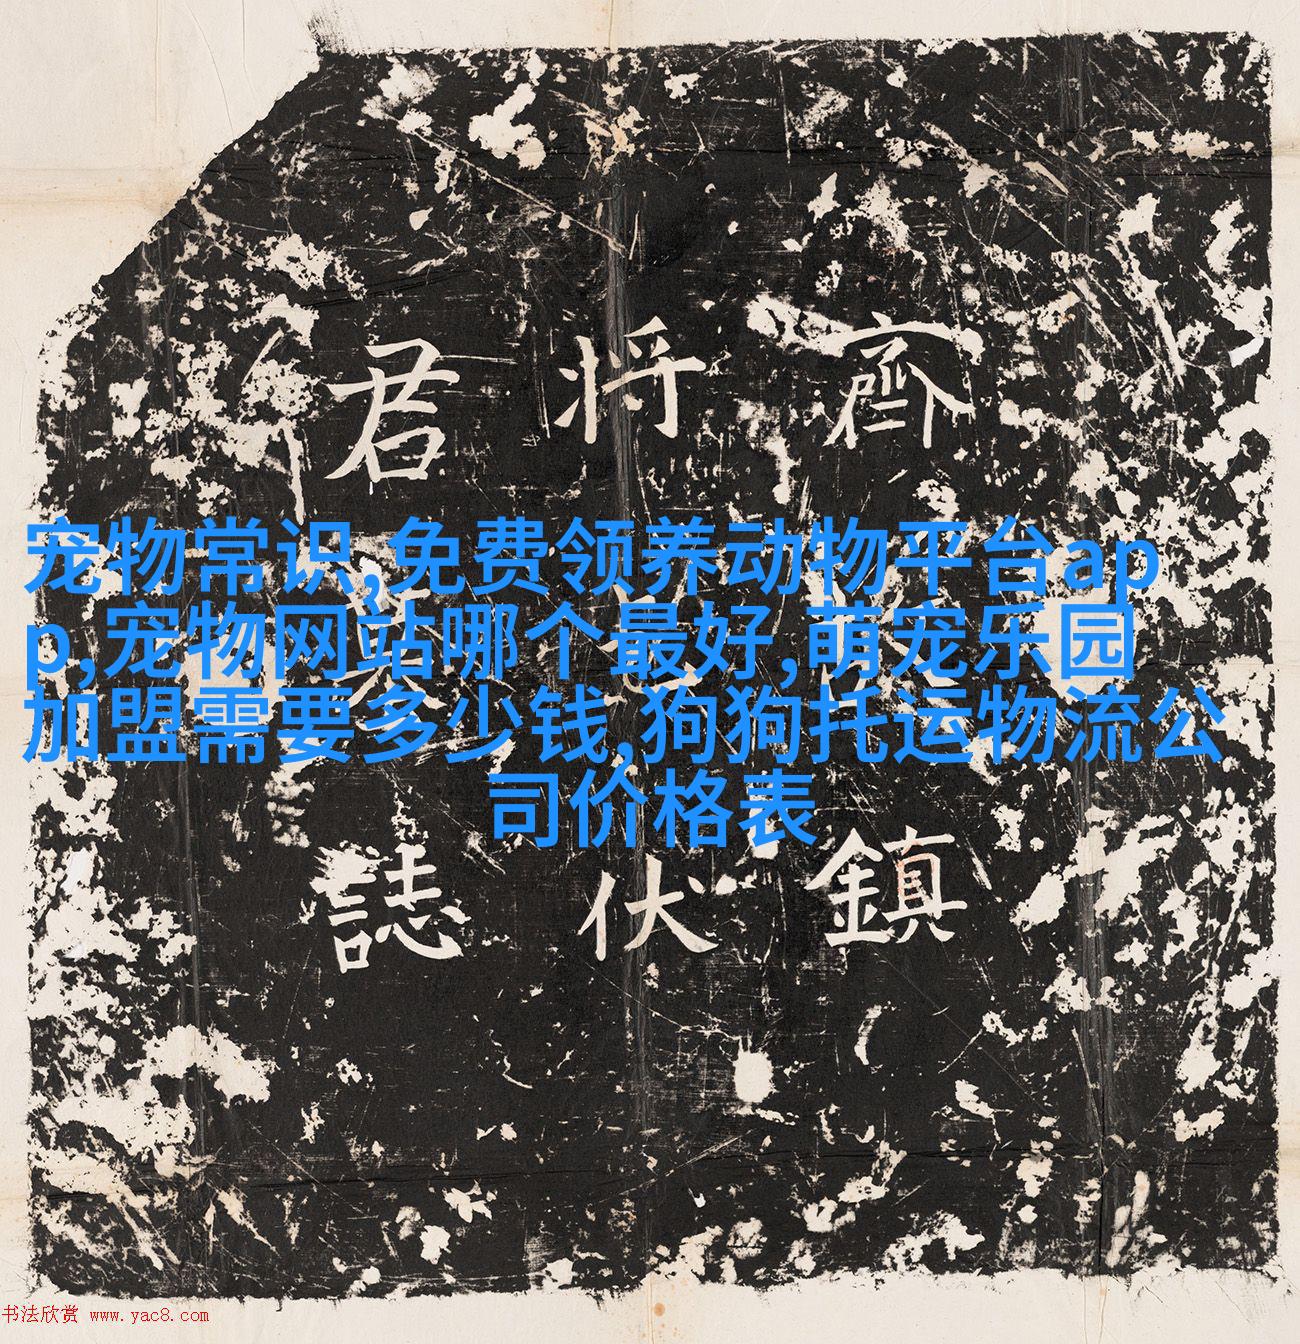 齊 鎮
将 伏
君 誌
宠物常识,免费领养动物平台ap
p,宠物网站哪个最好,萌宠乐园
加盟需要多少钱,狗狗托运物流公
司价格表
书法欣赏 www.yac8.com